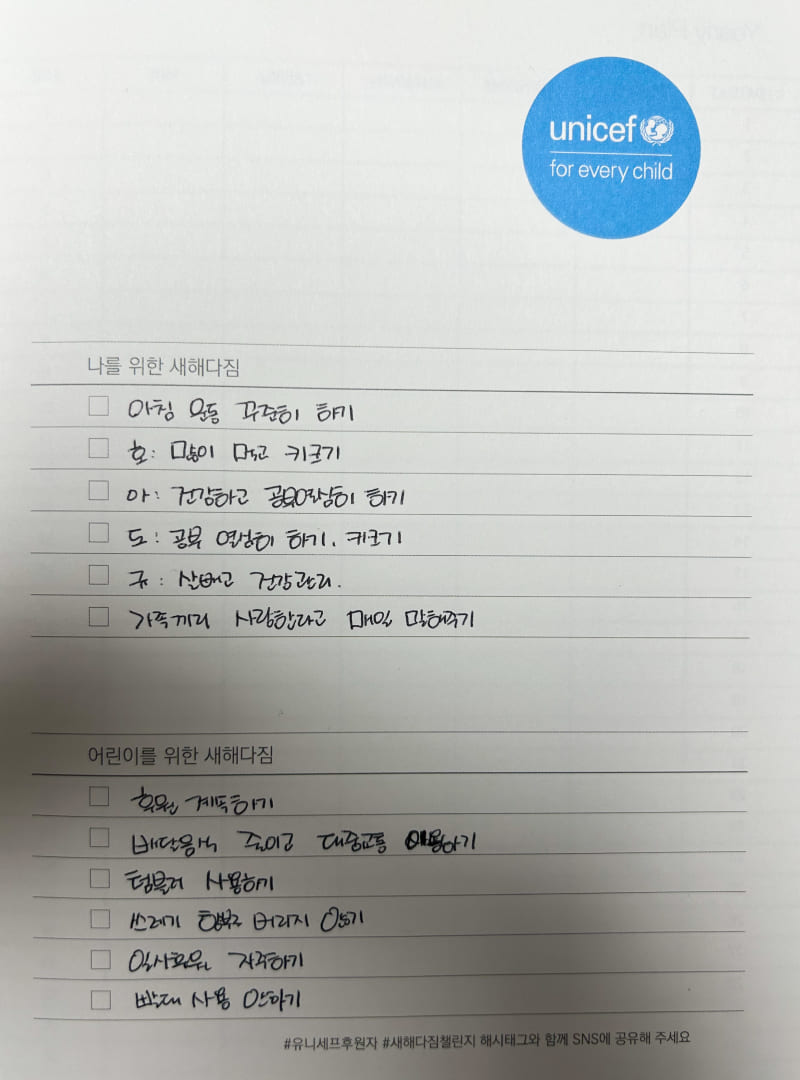 unicef
for every child
나를 위한 새해다짐
아침 운동 꾸준히 하기
호: 많이 먹고 키크기
아: 건강하고 공부열심히 하기
도: 공부 열심히 하기. 키크기
규: 산배고 건강관리.
가족끼리 사랑한다고 매일 말해주기
어린이를 위한 새해다짐
후원 계속하기
배달음식 줄이고 대중교통 이용하기
텀블러 사용하기
쓰레기 함부로 버리지 않기
일시후원 자주하기
빨대 사용 안하기
#유니세프후원자 #새해다짐챌린지 해시태그와 함께 SNS에 공유해 주세요